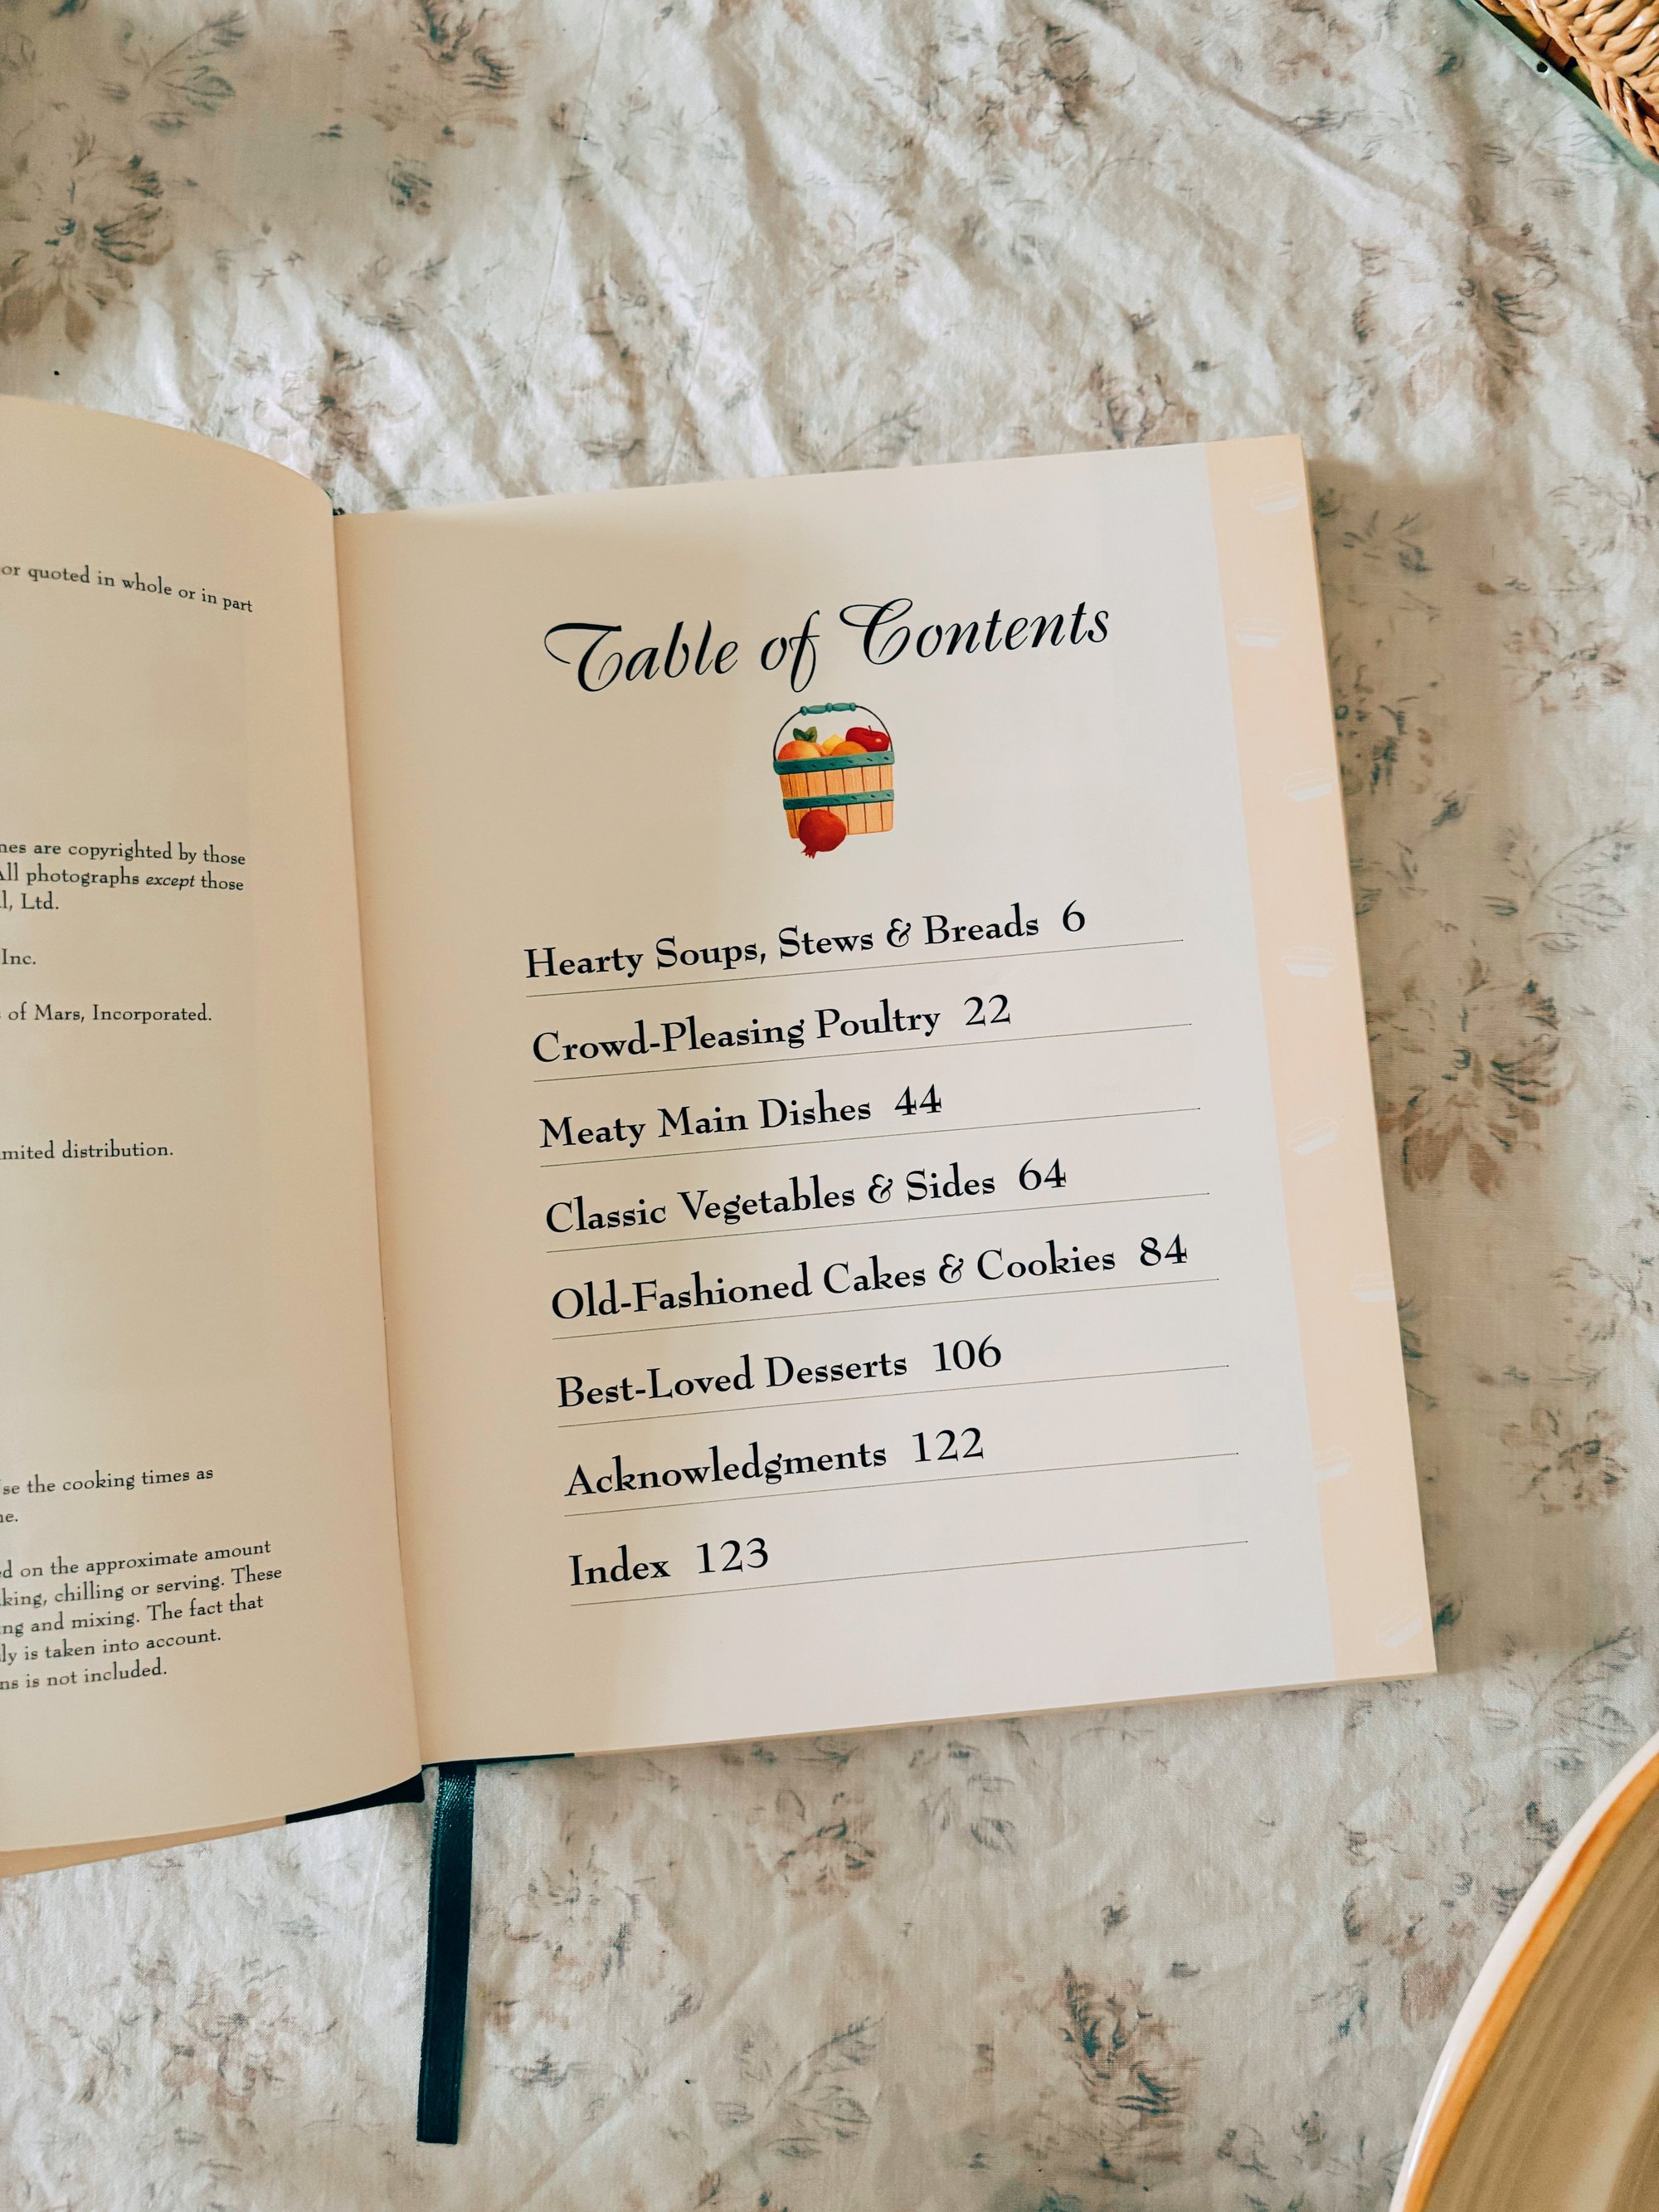 or quoted in whole or in part
are copyrighted by those
All photographs except those
Ltd.
Inc.
of Mars, Incorporated.
distribution.
the cooking times as
on the approximate amount
chilling or serving. These
and mixing. The fact that
is taken into account.
is not included.
Table of Contents
Hearty Soups, Stews & Breads 6
Crowd-Pleasing Poultry 22
Meaty Main Dishes 44
Classic Vegetables & Sides 64
Old-Fashioned Cakes & Cookies 84
Best-Loved Desserts 106
Acknowledgments 122
Index 123